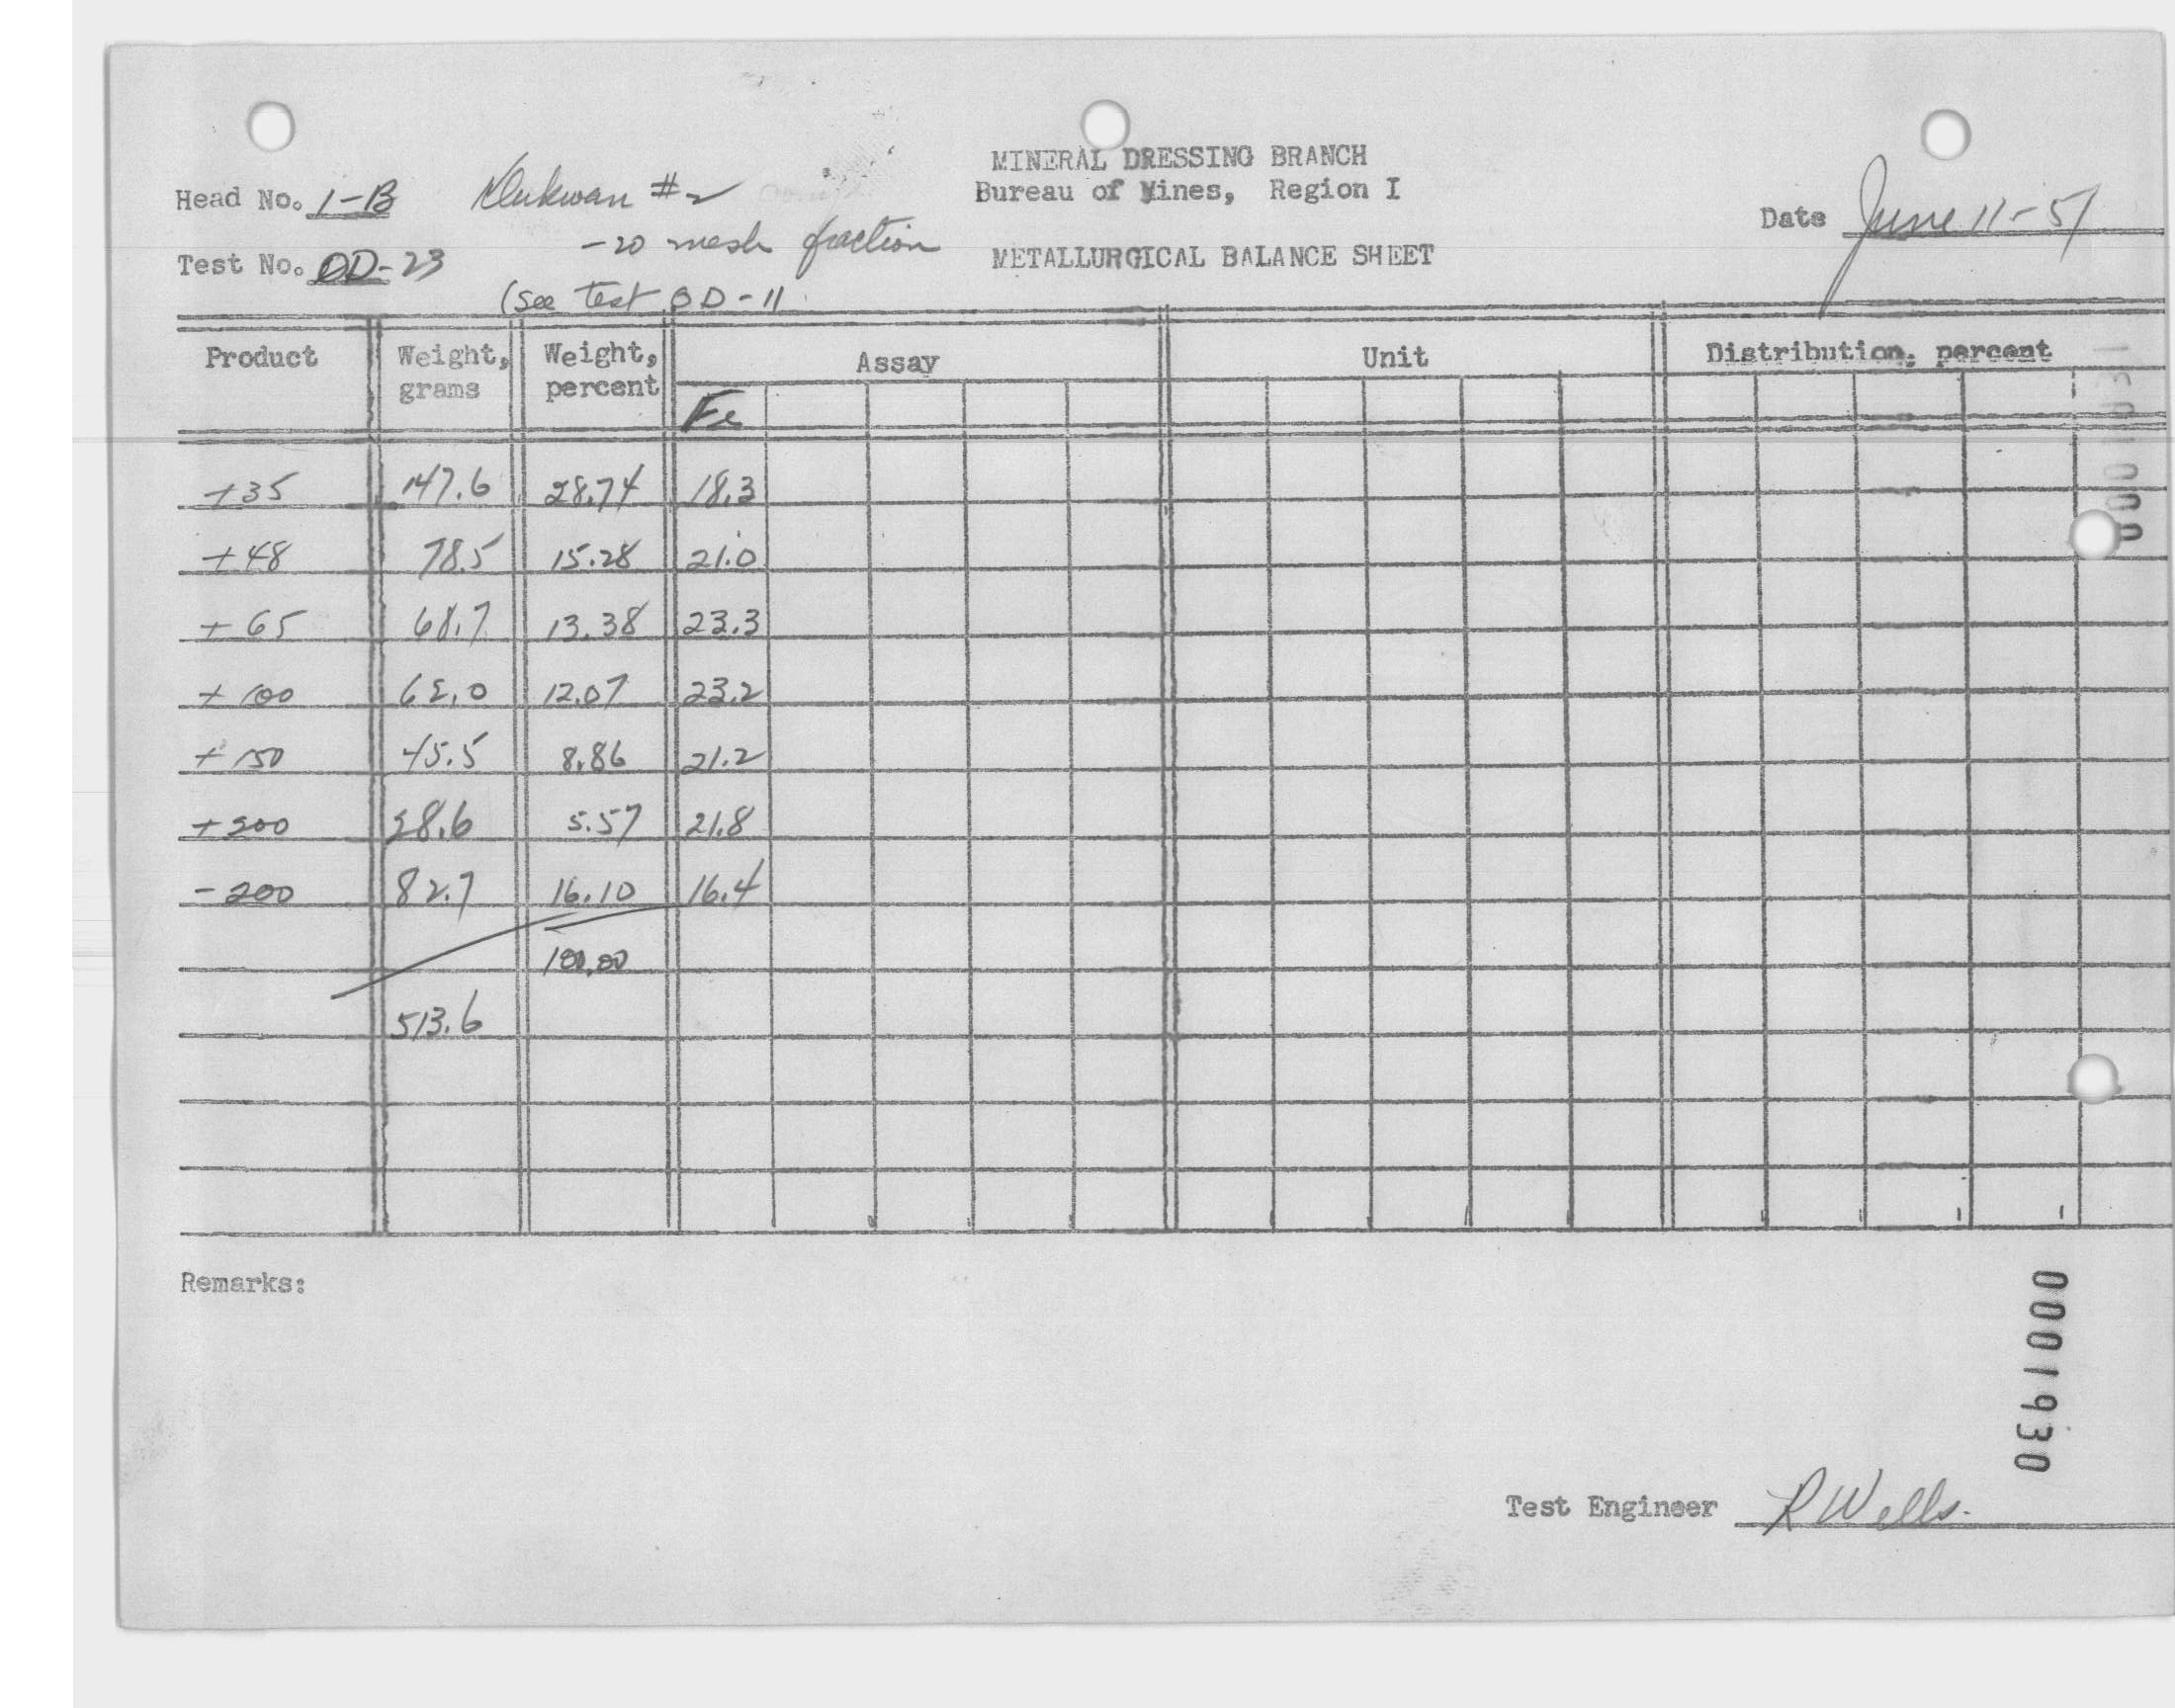 MINERAL DRESSING BRANCH
Bureau of Mines, Region I
Head No. 1-B Klukwan #2
Date June 11-51
-20 mesh fraction
Test No. OD-23
METALLURGICAL BALANCE SHEET
(see Test OD-11
Product Weight, grams Weight, percent Assay Unit Distribution, percent
Fe
+35 147.6 28.74 18.3
+48 78.5 15.28 21.0
+65 68.7 13.38 23.3
+100 62.0 12.07 23.2
+150 45.5 8.86 21.2
+200 28.6 5.57 21.8
-200 82.7 16.10 16.4
100.00
513.6
Remarks:
0001930
Test Engineer R Wells.